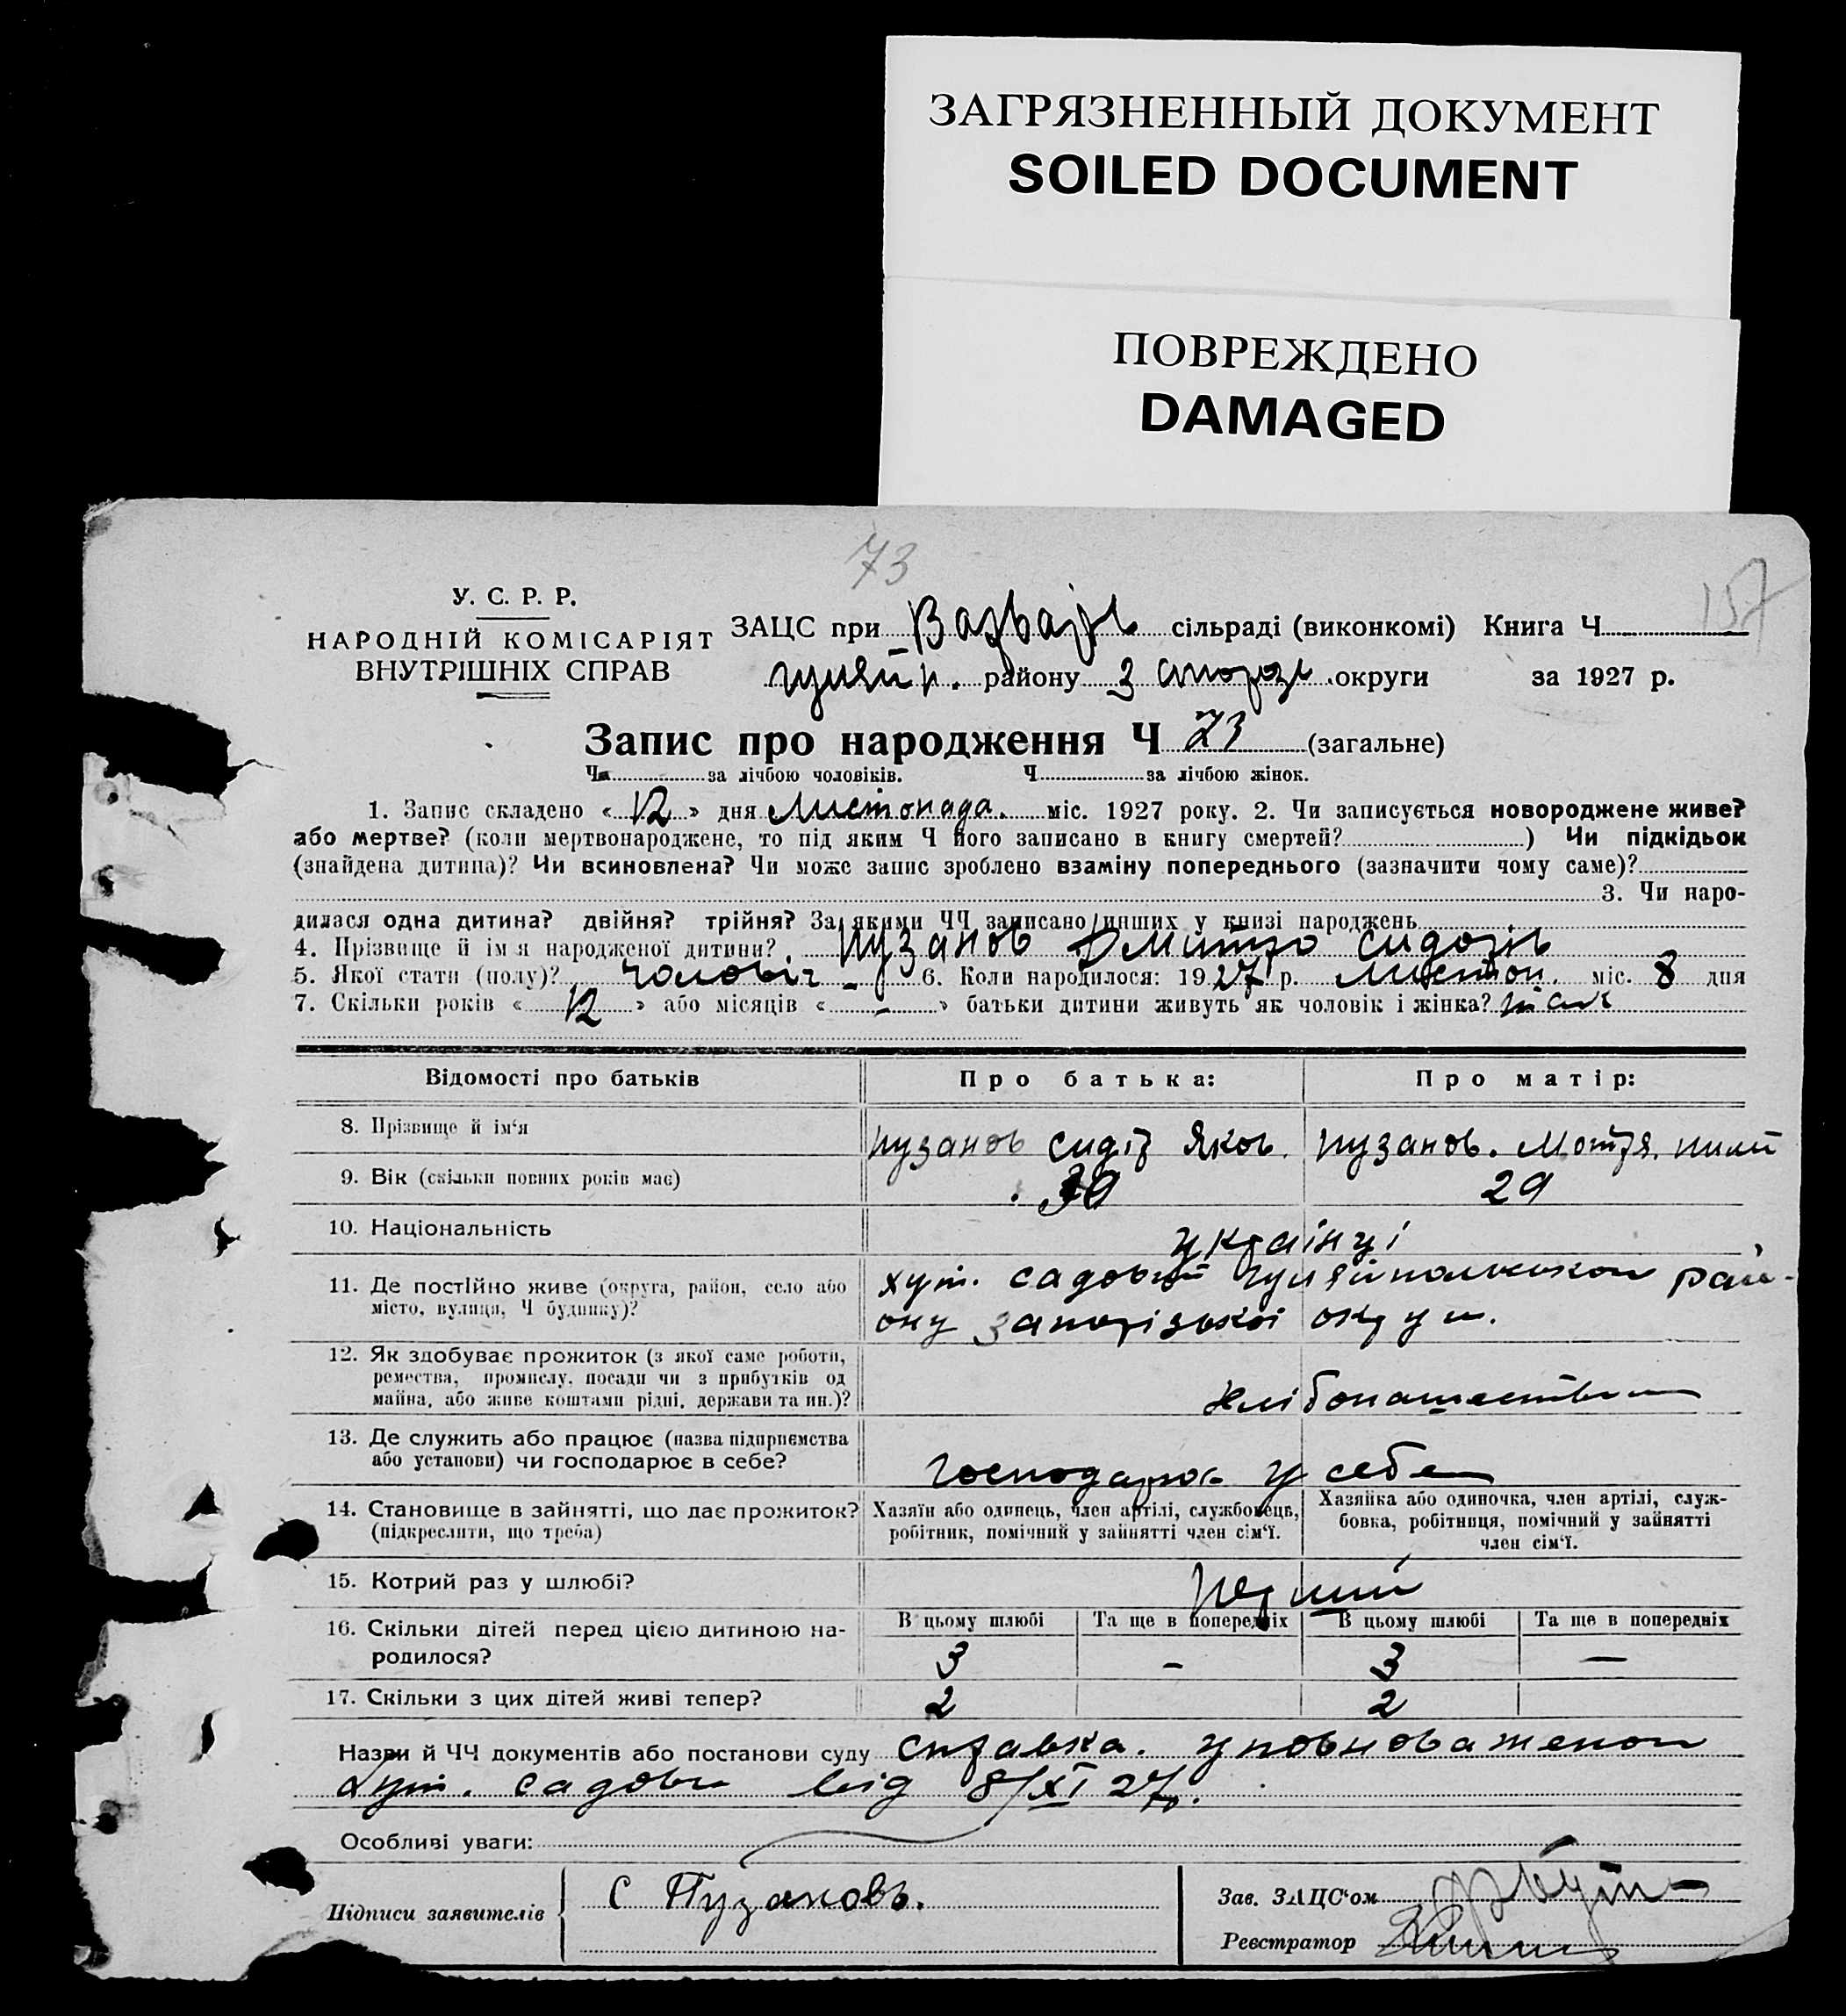 ЗАГРЯЗНЕННЫЙ ДОКУМЕНТ
SOILED DOCUMENT
ПОВРЕЖДЕНО
DAMAGED
73
157
У. С. Р. Р.
НАРОДНІЙ КОМІСАРІЯТ
ВНУТРІШНІХ СПРАВ
ЗАЦС при сільраді (виконкомі) Книга Ч.
гуляйп. району округи за 1927 р.
Запис про народження Ч 73 (загальне)
Ч за лічбою чоловіків. Ч за лічбою жінок.
1. Запис складено « 12 » дня Листопада. міс. 1927 року. 2. Чи записується новороджене живе?
або мертве? (коли мертвонароджене, то під яким Ч його записано в книгу смертей? ) Чи підкідьок
(знайдена дитина)? Чи всиновлена? Чи може запис зроблено взаміну попереднього (зазначити чому саме)?
3. Чи наро-
дилася одна дитина? двійня? трійня? За якими ЧЧ записано инших у книзі народжень
4. Прізвище й імя народженої дитини? Пузанов Дмитро Сидорів
5. Якої стати (полу)? чоловіч - 6. Коли народилося: 1927 р. Листоп. міс. 8 дня
7. Скільки років « 12 » або місяців « - » батьки дитини живуть як чоловік і жінка?
Відомості про батьків
Про батька:
Про матір:
8. Прізвище й ім‘я
Пузанов Сидір Яков.
Пузанов. Мотря.
9. Вік (скільки повних років має)
30
29
10. Національність
українці
11. Де постійно живе (округа, район, село або
місто, вулиця, Ч будинку)?
хут. садовий гуляйпольського рай-
ону запорізької округи.
12. Як здобуває прожиток (з якої саме роботи,
ремества, промислу, посади чи з прибутків од
майна, або живе коштами рідні, держави та ин.)?
хлібопашеством
13. Де служить або працює (назва підприємства
або установи) чи господарює в себе?
господарює у себе
14. Становище в зайнятті, що дає прожиток?
(підкреслити, що треба)
Хазяїн або одинець, член артілі, службовець,
робітник, помічний у зайнятті член сім‘ї.
Хазяйка або одиночка, член артілі, служ-
бовка, робітниця, помічний у зайнятті
член сім‘ї.
15. Котрий раз у шлюбі?
перший
16. Скільки дітей перед цією дитиною на-
родилося?
В цьому шлюбі Та ще в попередніх В цьому шлюбі Та ще в попередніх
3 - 3 —
17. Скільки з цих дітей живі тепер?
2 2
Назви й ЧЧ документів або постанови суду справка. уповноваженого
хут. садови від 8/XI 27.
Особливі уваги:
Підписи заявителів
С Пузановъ.
Зав. ЗАЦС‘ом
Реєстратор